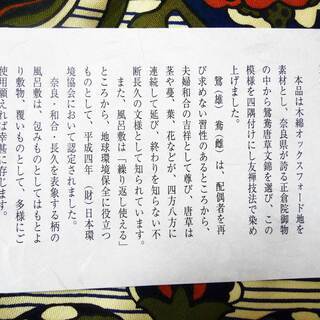 本品は木綿オックスフォード地を
素材とし、奈良県が誇る正倉院御物
の中から鴛鴦唐草文錦を選び、この
模様を四隅付けにし友禅技法で染め
上げました。
鴛(雄)鴦(雌)は、配偶者を再
び求めない習性のあるところから、
夫婦和合の吉祥として尊び、唐草は
茎や蔓、葉、花などが、四方八方に
連続して延び、終わりを知らない不
断長久の文様として知られています。
また、風呂敷は「繰り返し使える」
ところから、地球環境保全に役立つ
ものとして、平成四年(財)日本環
境協会において認定されました。
奈良・和合・長久を表象する柄の
風呂敷は、包みものとしてはもとよ
り敷物、覆いものとして、多様にご
使用願えれば幸甚に存じます。